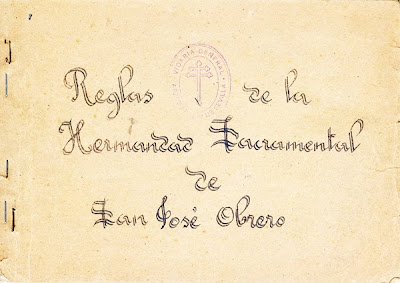 VICARIA GENERAL
Reglas de la
Hermandad Sacramental
de
San José Obrero